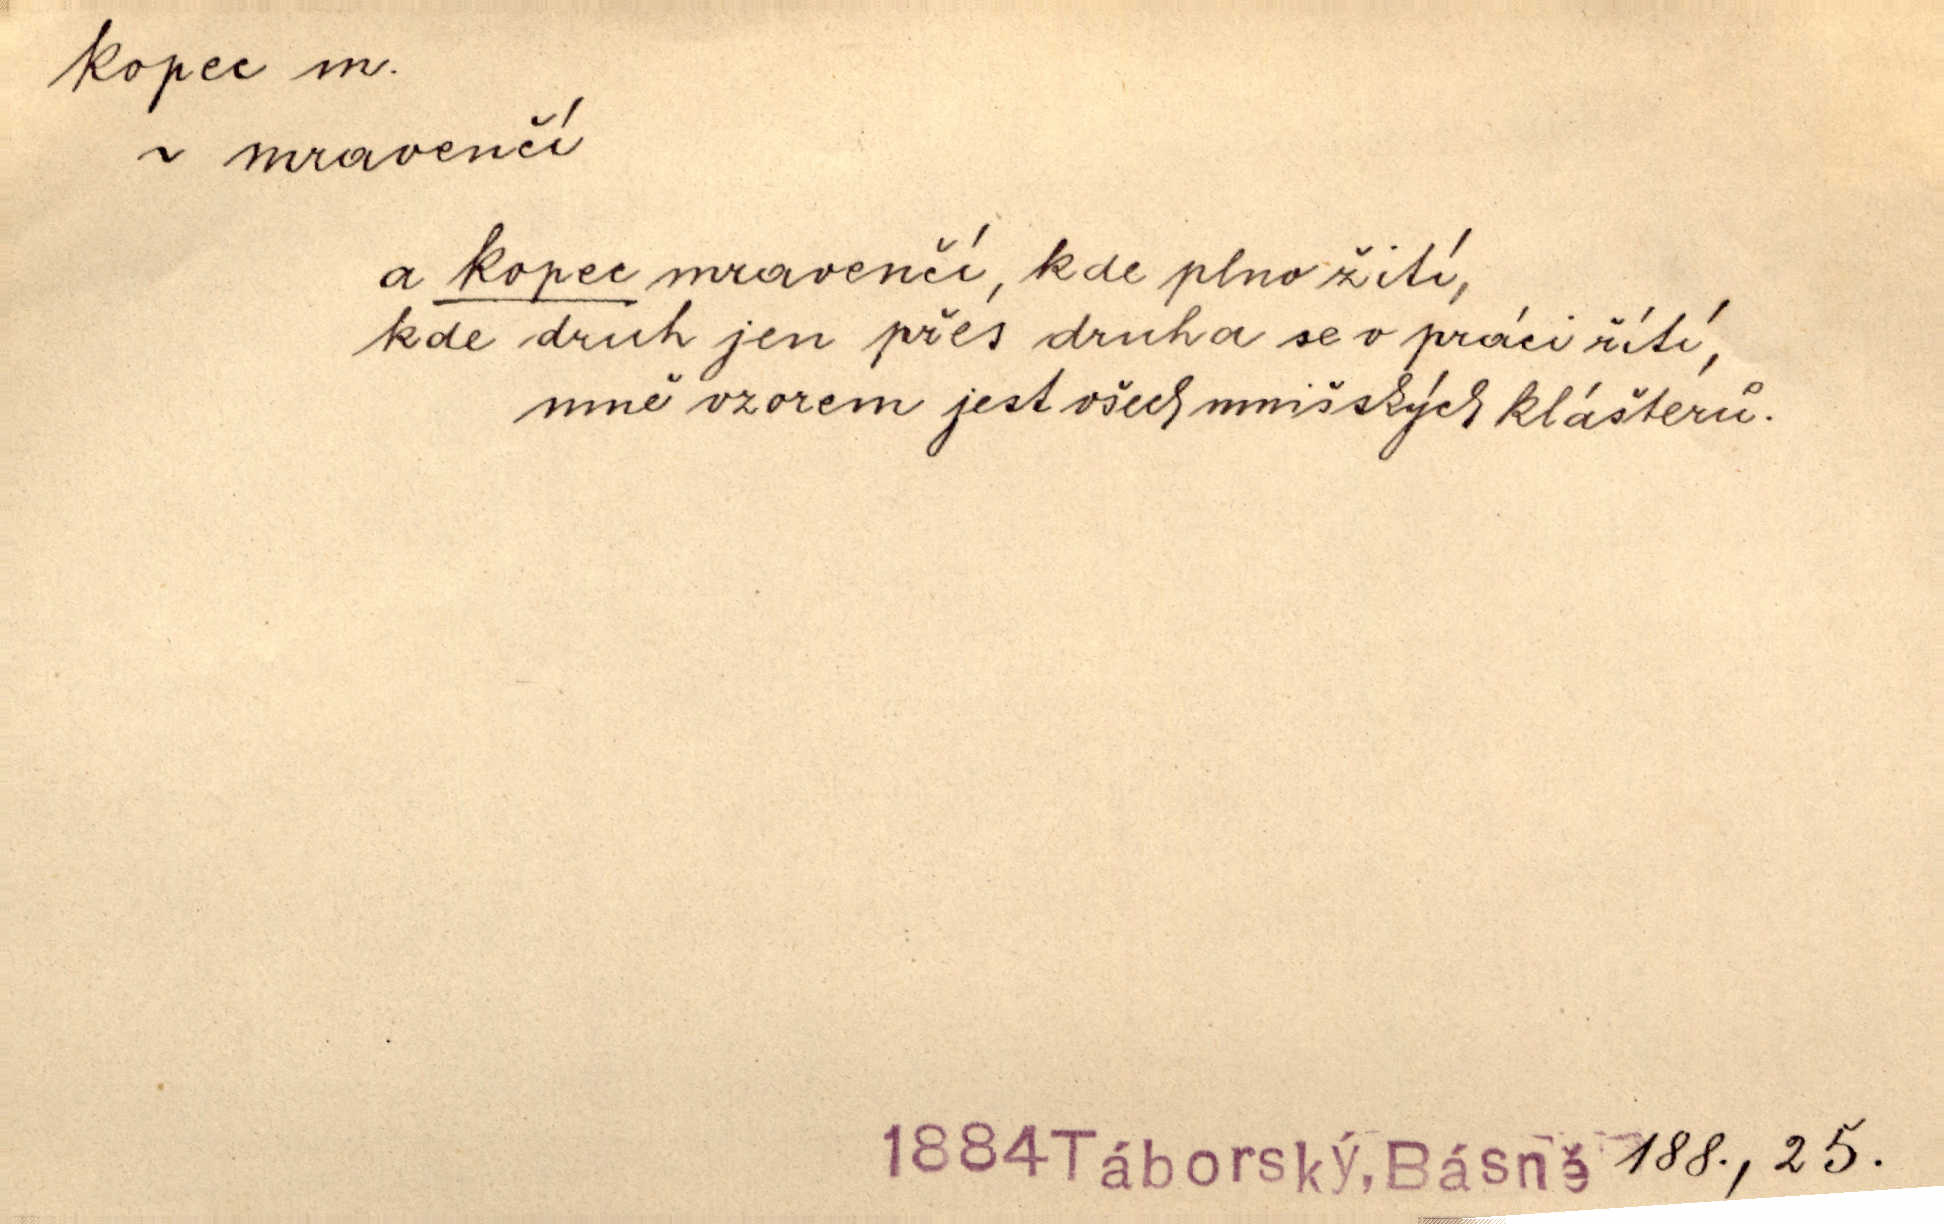 kopec m.
~ mravenčí
a kopec mravenčí, kde plno žití,
kde druh jen přes druha se v práci řítí,
mně vzorem jest všech mnišských klášterů.
1884 Táborský, Básně 188., 25.